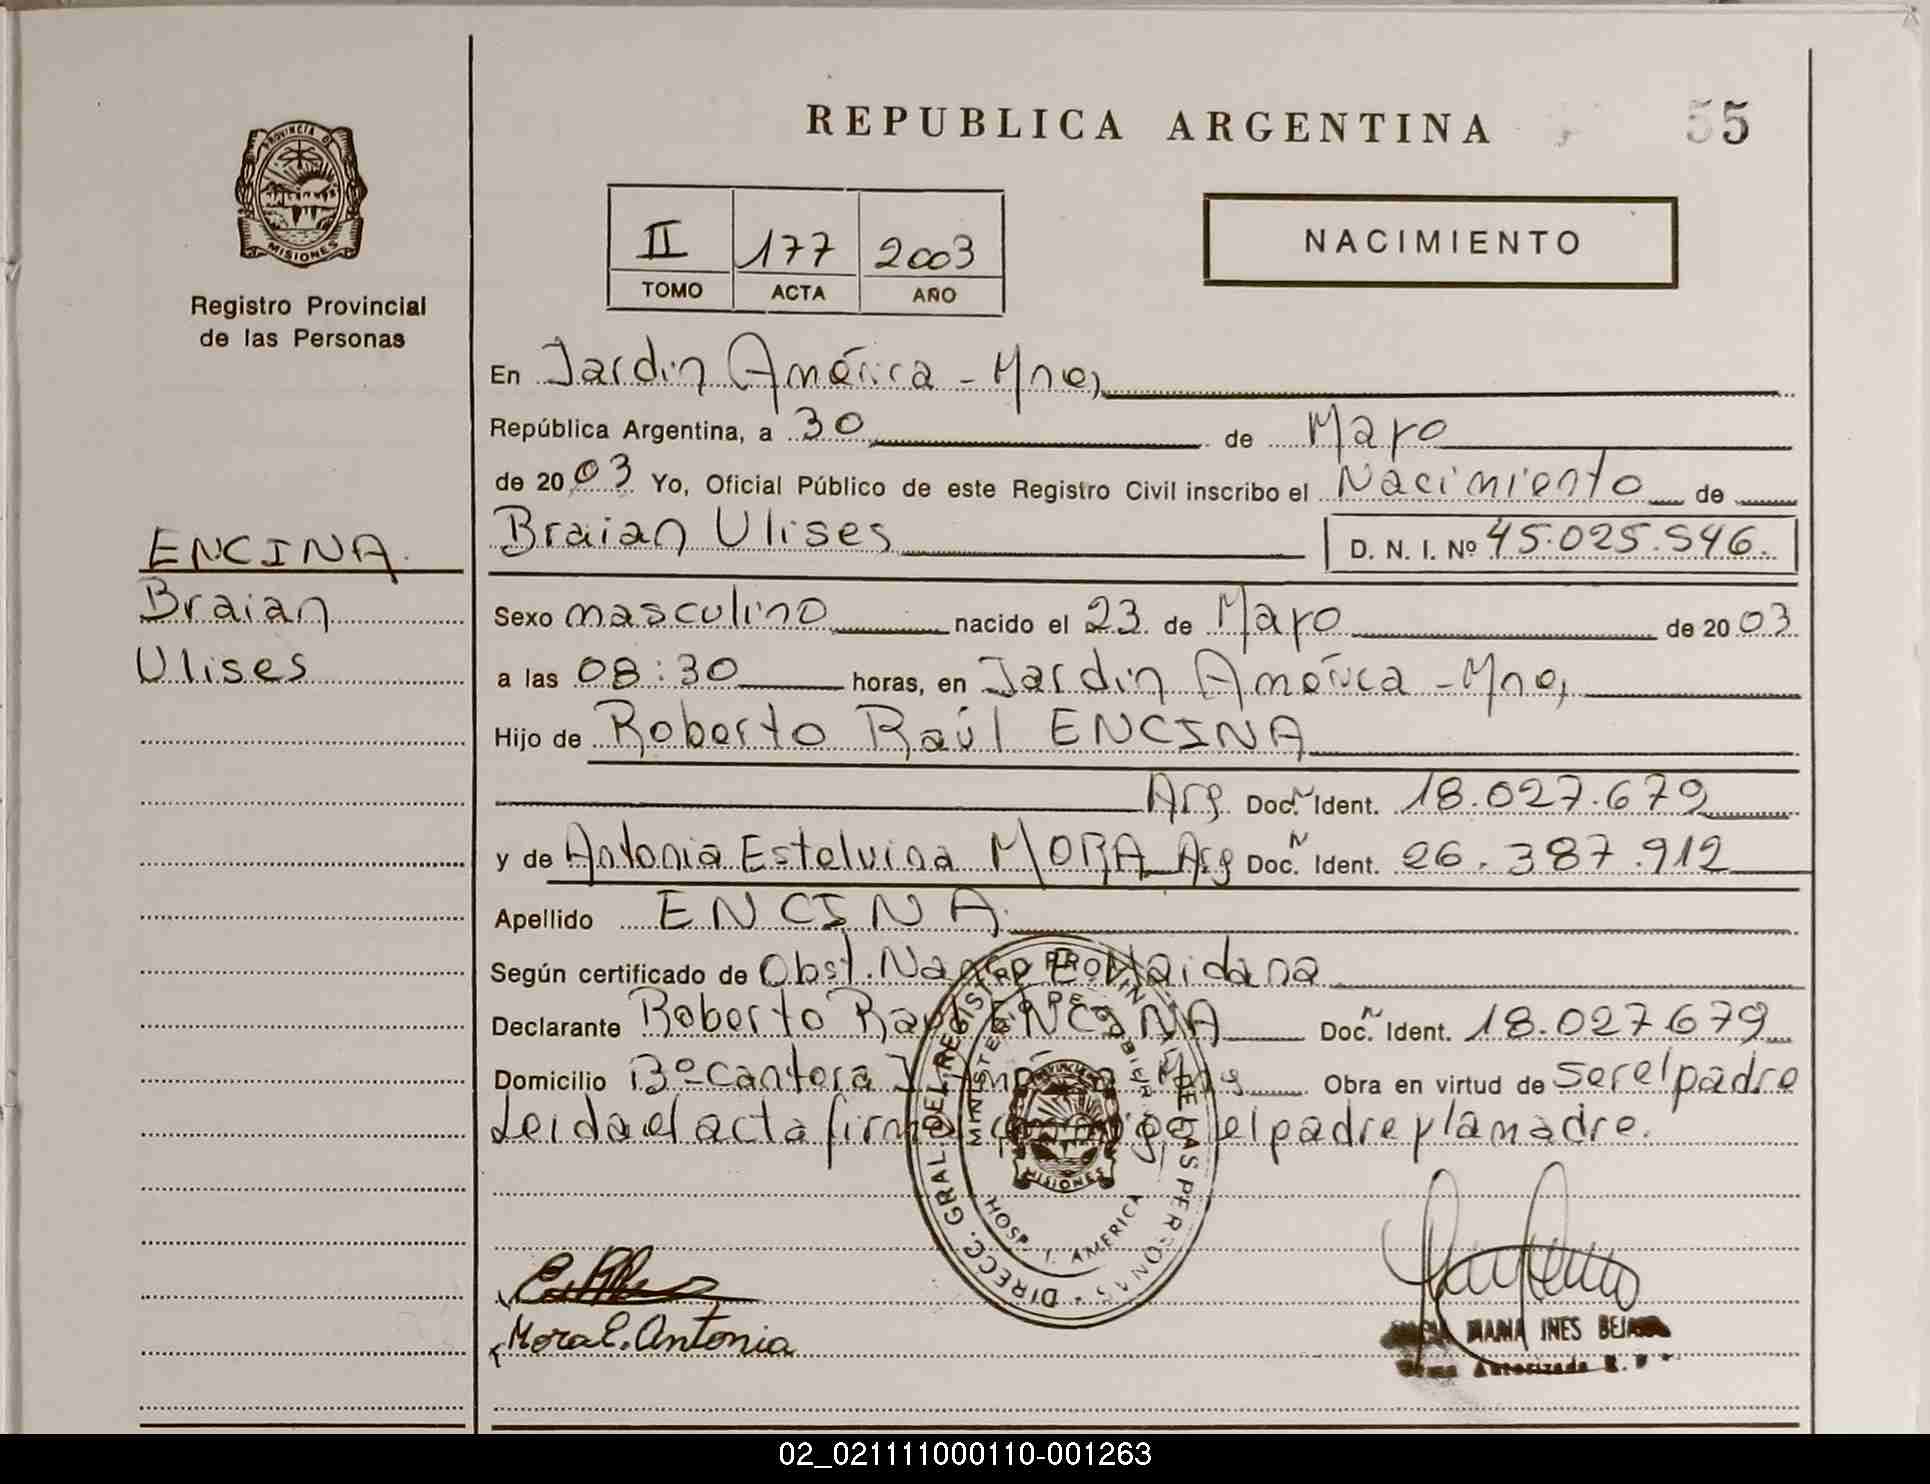 REPUBLICA ARGENTINA
55
PROVINCIA DE
MISIONES
Registro Provincial
de las Personas
II 177 2003
TOMO ACTA AÑO
NACIMIENTO
En Jardin América - Mnes,
República Argentina, a 30 de Mayo
de 2003 Yo, Oficial Público de este Registro Civil inscribo el Nacimiento de
Braian Ulises D. N. I. Nº 45.025.546.
ENCINA.
Braian
Ulises
Sexo masculino nacido el 23 de Mayo de 2003
a las 08:30 horas, en Jardin América - Mnes,
Hijo de Roberto Raúl ENCINA
Arg Doc. N Ident. 18.027.679
y de Antonia Estelvina MORA Arg Doc. N Ident. 26.387.912
Apellido ENCINA.
Según certificado de Obst. E. Maidana
Declarante Roberto Raúl ENCINA Doc. N Ident. 18.027.679
Domicilio Bº Cantera Obra en virtud de ser el padre
Leida el acta firma el padre y la madre.
DIRECC. GRAL. DEL REGISTRO PROVINCIAL DE LAS PERSONAS
MINISTERIO DE GOBIERNO
PROVINCIA DE
MISIONES
HOSP. J. AMERICA
Mora E. Antonia
MARIA INES
Autorizada R. P.
02_021111000110-001263